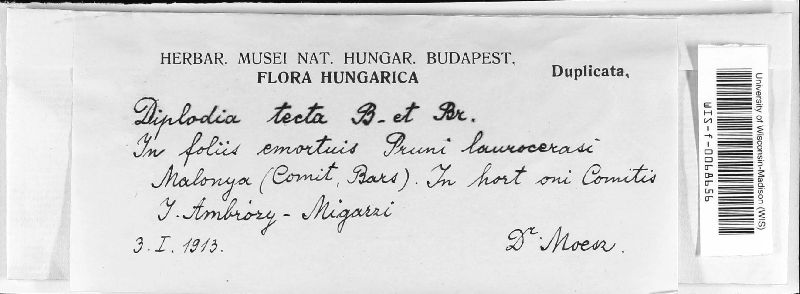 HERBAR. MUSEI NAT. HUNGAR. BUDAPEST.
FLORA HUNGARICA
Duplicata.
Diplodia tecta B. et Br.
In foliis emortuis Pruni laurocerasi
Malonya (Comit. Bars). In hort oni Comitis
I. Ambrózy - Migazzi
3. I. 1913.
Dr. Moesz.
University of Wisconsin-Madison (WIS)
WIS-f-0068656